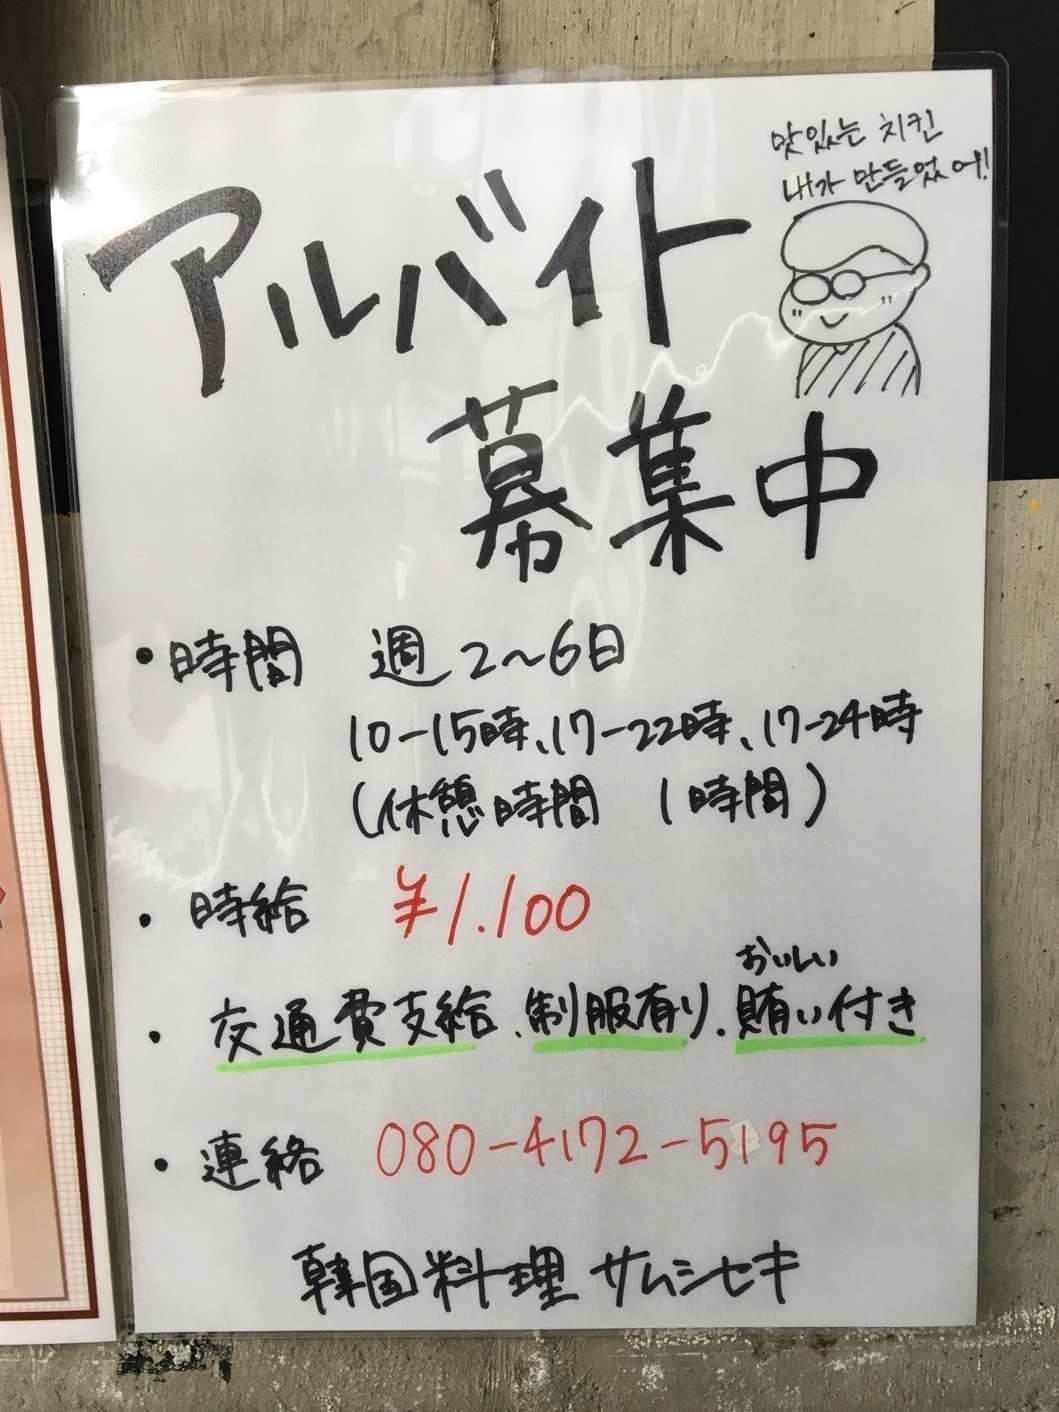 맛있는 치킨
내가 만들었어!
アルバイト
募集中
・時間 週2〜6日
10-15時、17-22時、17-24時
(休憩時間 1時間)
・時給 ¥1.100
おいしい
・交通費支給、制服有り、賄い付き
・連絡 080-4172-5195
韓国料理 サムシセキ